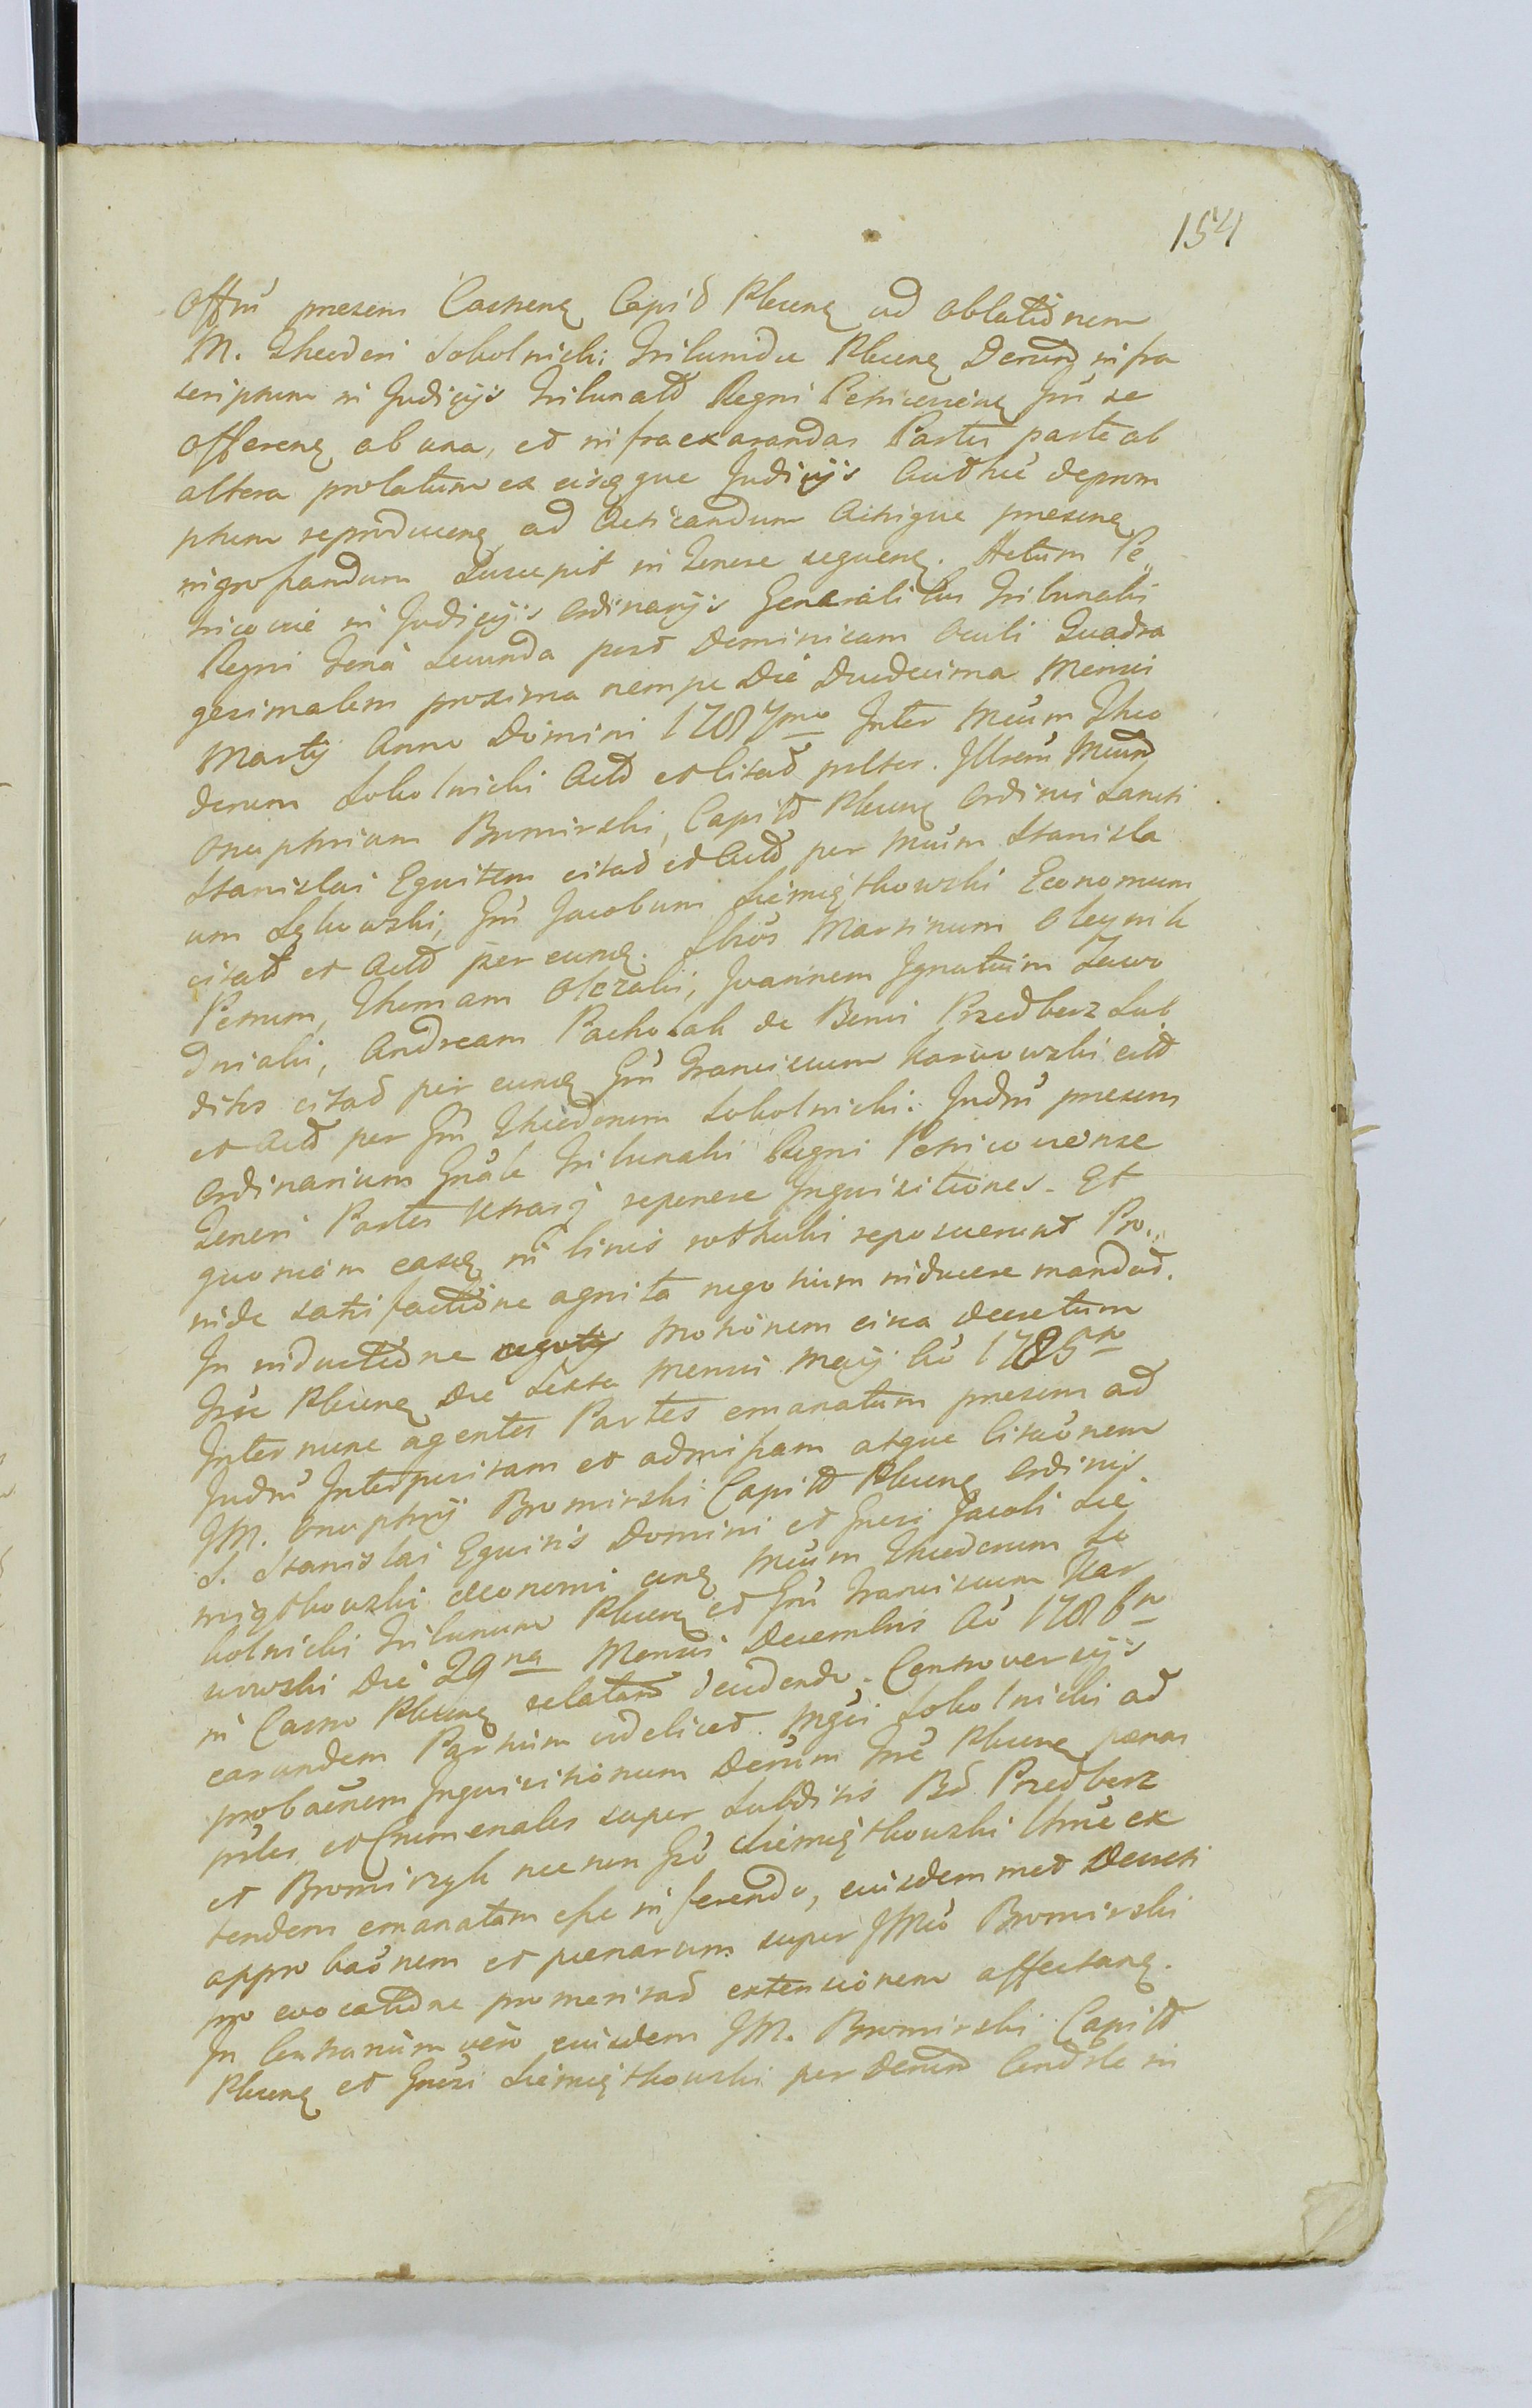 154
Offm̄ presens Castrenȩ Capid Plocenȩ ad oblationem
M. Theodori Sokolnicki Tribunidu Plocenȩ Decrun infra
scriptum in Judicijs Tribunatt Regni Petricoviens Gn̄ se
offerenȩ ab una, et infra exarandas Partes parte ab
altera prolatum ex eisȩque Judicijs authce deprom
ptum reproducenȩ ad Acticandum Actisque presenȩ
ingrossandum Suscepit in Tenore sequenȩ. Actum Pe„
tricoviė in Judicijs Ordinarijs Generalibus Tribunalis
Regni Feriȧ Secunda post Dominicam Oculi Quadra
gesimalem proxima nempe Die Duodecima Mensis
Martij Anno Domini 1787mo Inter Mcum Theo
dorum Sokolnicki Actt et Citatt Illrem Mcum
Onuphrium Bromirski, Capitt Plocenȩ Ordinis Sancti
Stanislai Equitem citatt et Actt per Mcum Stanisla
um Łękowski, Gn̄ Jacobum Siemiątkowski Economum
citatt et Actt per eunȩ. Lbos Martinum Oleynik
Petrum, Thomam Olczaki, Joannem Ignatium Zawo
dniaki, Andream Pacholak de Bonis Przedbierz Sub
ditos citatt per eunȩ Gn̄ Franciscum Karwowski citt
et Actt per Gn̄ Theodorum Sokolnicki: Judm̄ presens
Ordinarium Gnȧle Tribunalis Regni Petricoviense
Teneri Partes utrasȩ reponere Inquisitiones. Et
quoniam easȩ in binis rothulis reposuerunt Pro„
inde satisfactione agnita negotium inducere mandat.
In inductione negotij Motionem circa decretum
Trre Plocenȩ Die Sexta Mensis Maij Ao 1785to
Inter nunc agentes Partes emanatum presens ad
Judm̄ Interpositam et admissam atque Citaōnem
JM. Onuphrij Bromirski Capitt Plocenȩ Ordinis
S. Stanislai Equitis Domini et Gnesi Jacobi Sie
miątkowski Œconomi cunȩ Mcum Theodorum So
kolnicki Tribunum Plocenȩ et Gn̄ Franciscum Kar
wowski Die 29na Mensis Decembris Ao 1786to
in Castro Plocenȩ relatam decidendo. Controversijs
earundem Partium videlicet. Mgci Sokolnicki ad
probaōnem Inquisitionum Decrum Trre Plocenȩ pœnas
prles, et Criminales super Subditis Bo Przedbierz
et Bromirzyk nec non Gso Siemiątkowski
tendens emanatum esse inferendo, eiusdemmet Decreti
approbaōnem et pœnarum super JMco Bromirski
pro evocatione promeritatt extensionem affectanȩ.
In Contrarium vero eiusdem JM. Bromirski Capitt
Plocenȩ et Gnesi Siemiątkowski per Decrum Condsle in